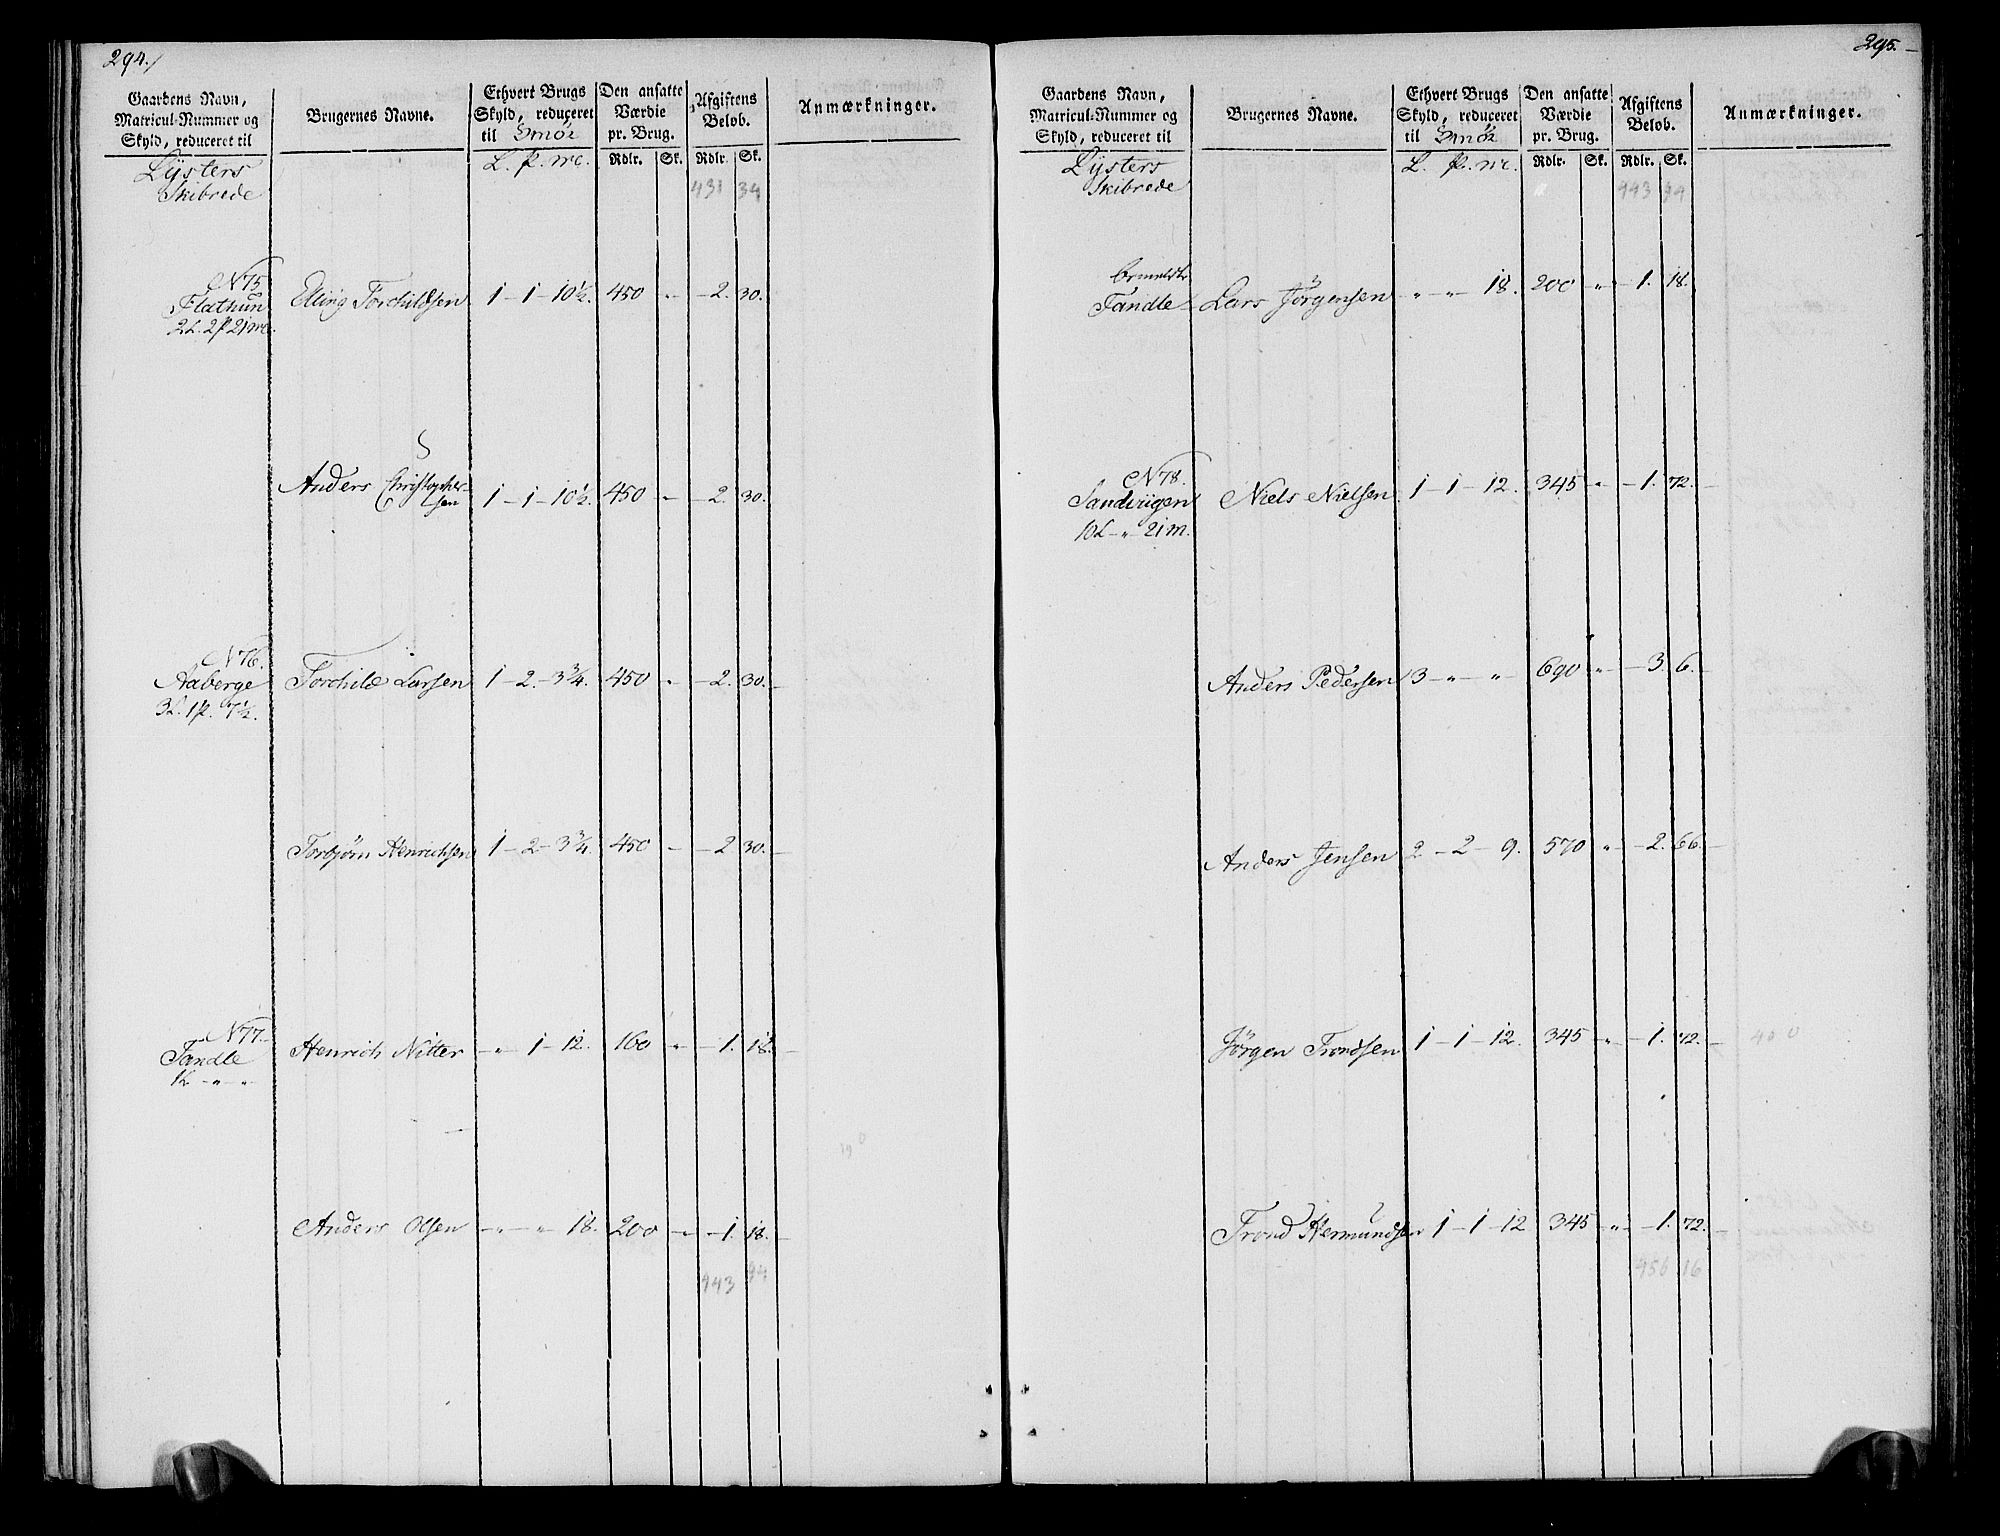 294./
Gaardens Navn, Matricul-Nummer og Skyld, reduceret til
Brugernes Navne.
Ethvert Brugs Skyld, reduceret til Smör
Den ansatte Værdie pr. Brug.
Afgiftens Belob.
Anmærkninger.
L. p. mc. Rdlr. Sk. Rdlr. Sk.
Lysters
Skibrede
431 34
N 75
Flathun
2L. 2p 21mc.
Elling Torchildsen 1-1-10½. 450 " -2. 30.
Anders Christopher-
sen 1-1-10½. 450 " -2. 30.
N 76.
Aaberge
3L. 1p. 7½.
Torchild Larsen 1-2-3¾. 450 " -2. 30.-
Torbjørn Henrichsen 1-2-3¾. 450 - -2 30.-
N 77.
Tandle
1L-"-"
Henrich Nitter -"-1-12. 160 " -1. 18.-
Anders Olsen -"-"-18. 200 " -1. 18.-
943 94
295.-
Gaardens Navn, Matricul-Nummer og Skyld, reduceret til
Brugernes Navne.
Ethvert Brugs Skyld, reduceret til Smör
Den ansatte Værdie pr. Brug.
Afgiftens Belob.
Anmærkninger.
L. p. mc. Rdlr. Sk. Rdlr. Sk.
Lysters
Skibrede
943 94
Tandle
Lars Jørgensen "-"-18. 200 " -1. 18.
N 78.
Sandvigen
10L-"-21m.
Niels Nielsen 1-1-12. 345 " -1. 72.-
Anders Pedersen 3-"-" 690 " -3. 6.-
Anders Jensen 2-2-9. 570 " -2. 66.-
Jørgen Trondsen 1-1-12. 345 " -1. 72.-
Trond Hermundsen 1-1-12 345 " -1. 72.-
956 16